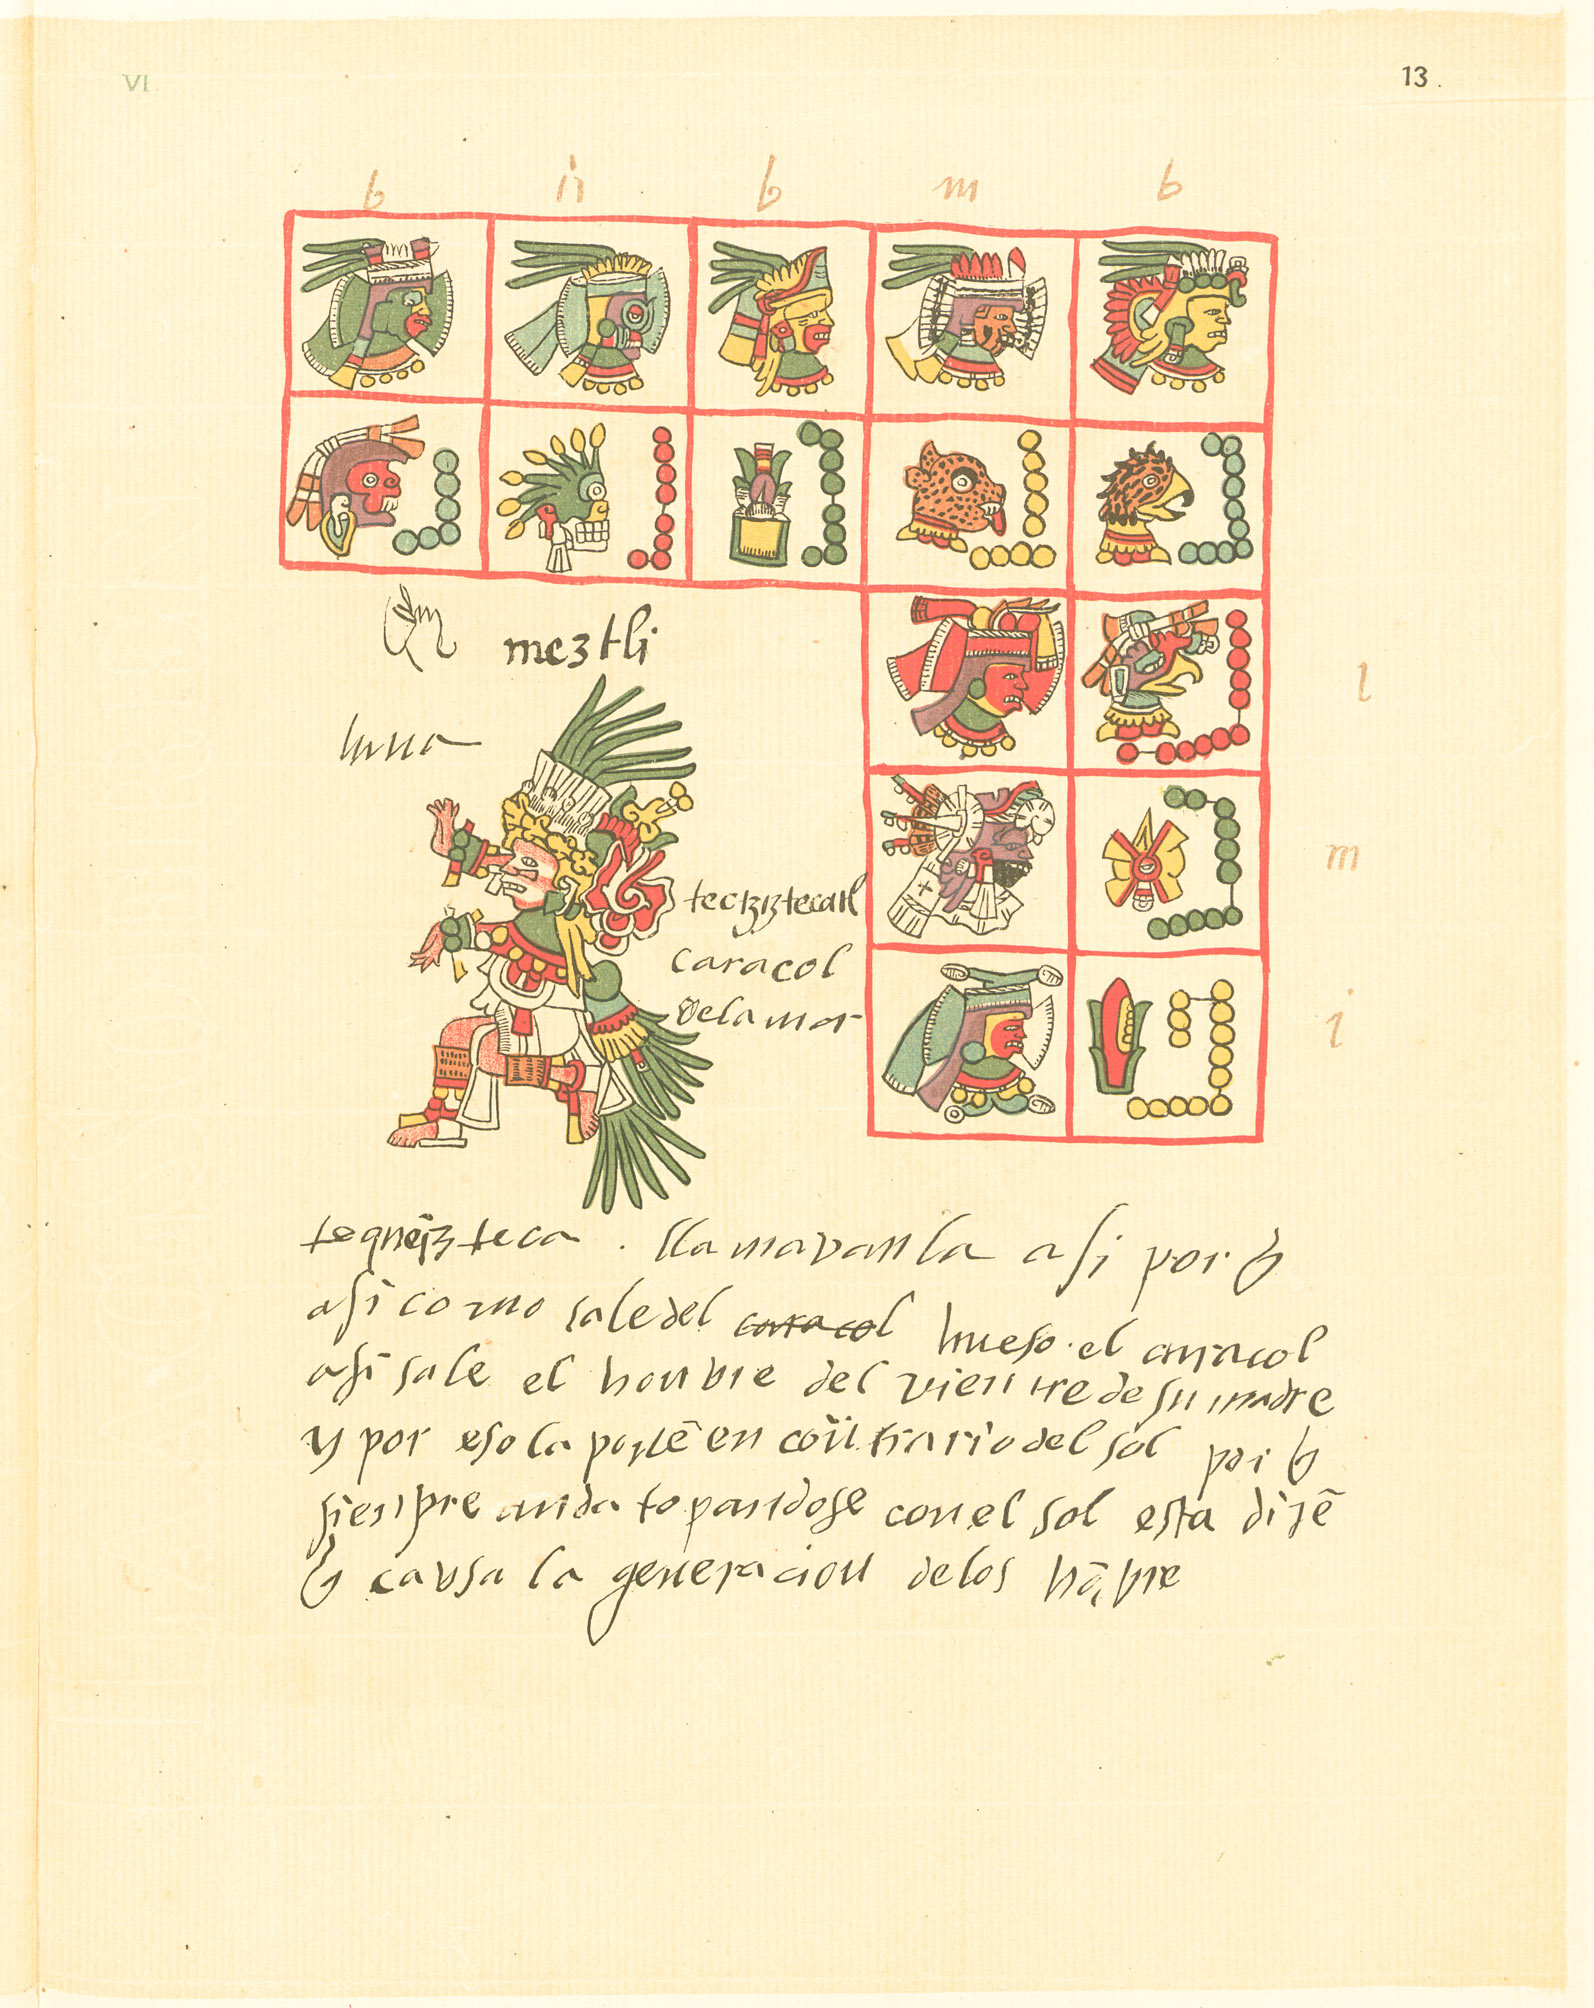 VI
13.
b n b m b
meztli
luna
l
m
tecziztecatl
caracol
dela mar
l
tequeizteca . llamavanla asi por q
asi como sale del caracol hueso el caracol
asi sale el honbre del vientre de su madre
y por eso la ponē en contrario del sol por q
sienpre anda topandose con el sol esta dizē
q causa la generacion delos hōbre